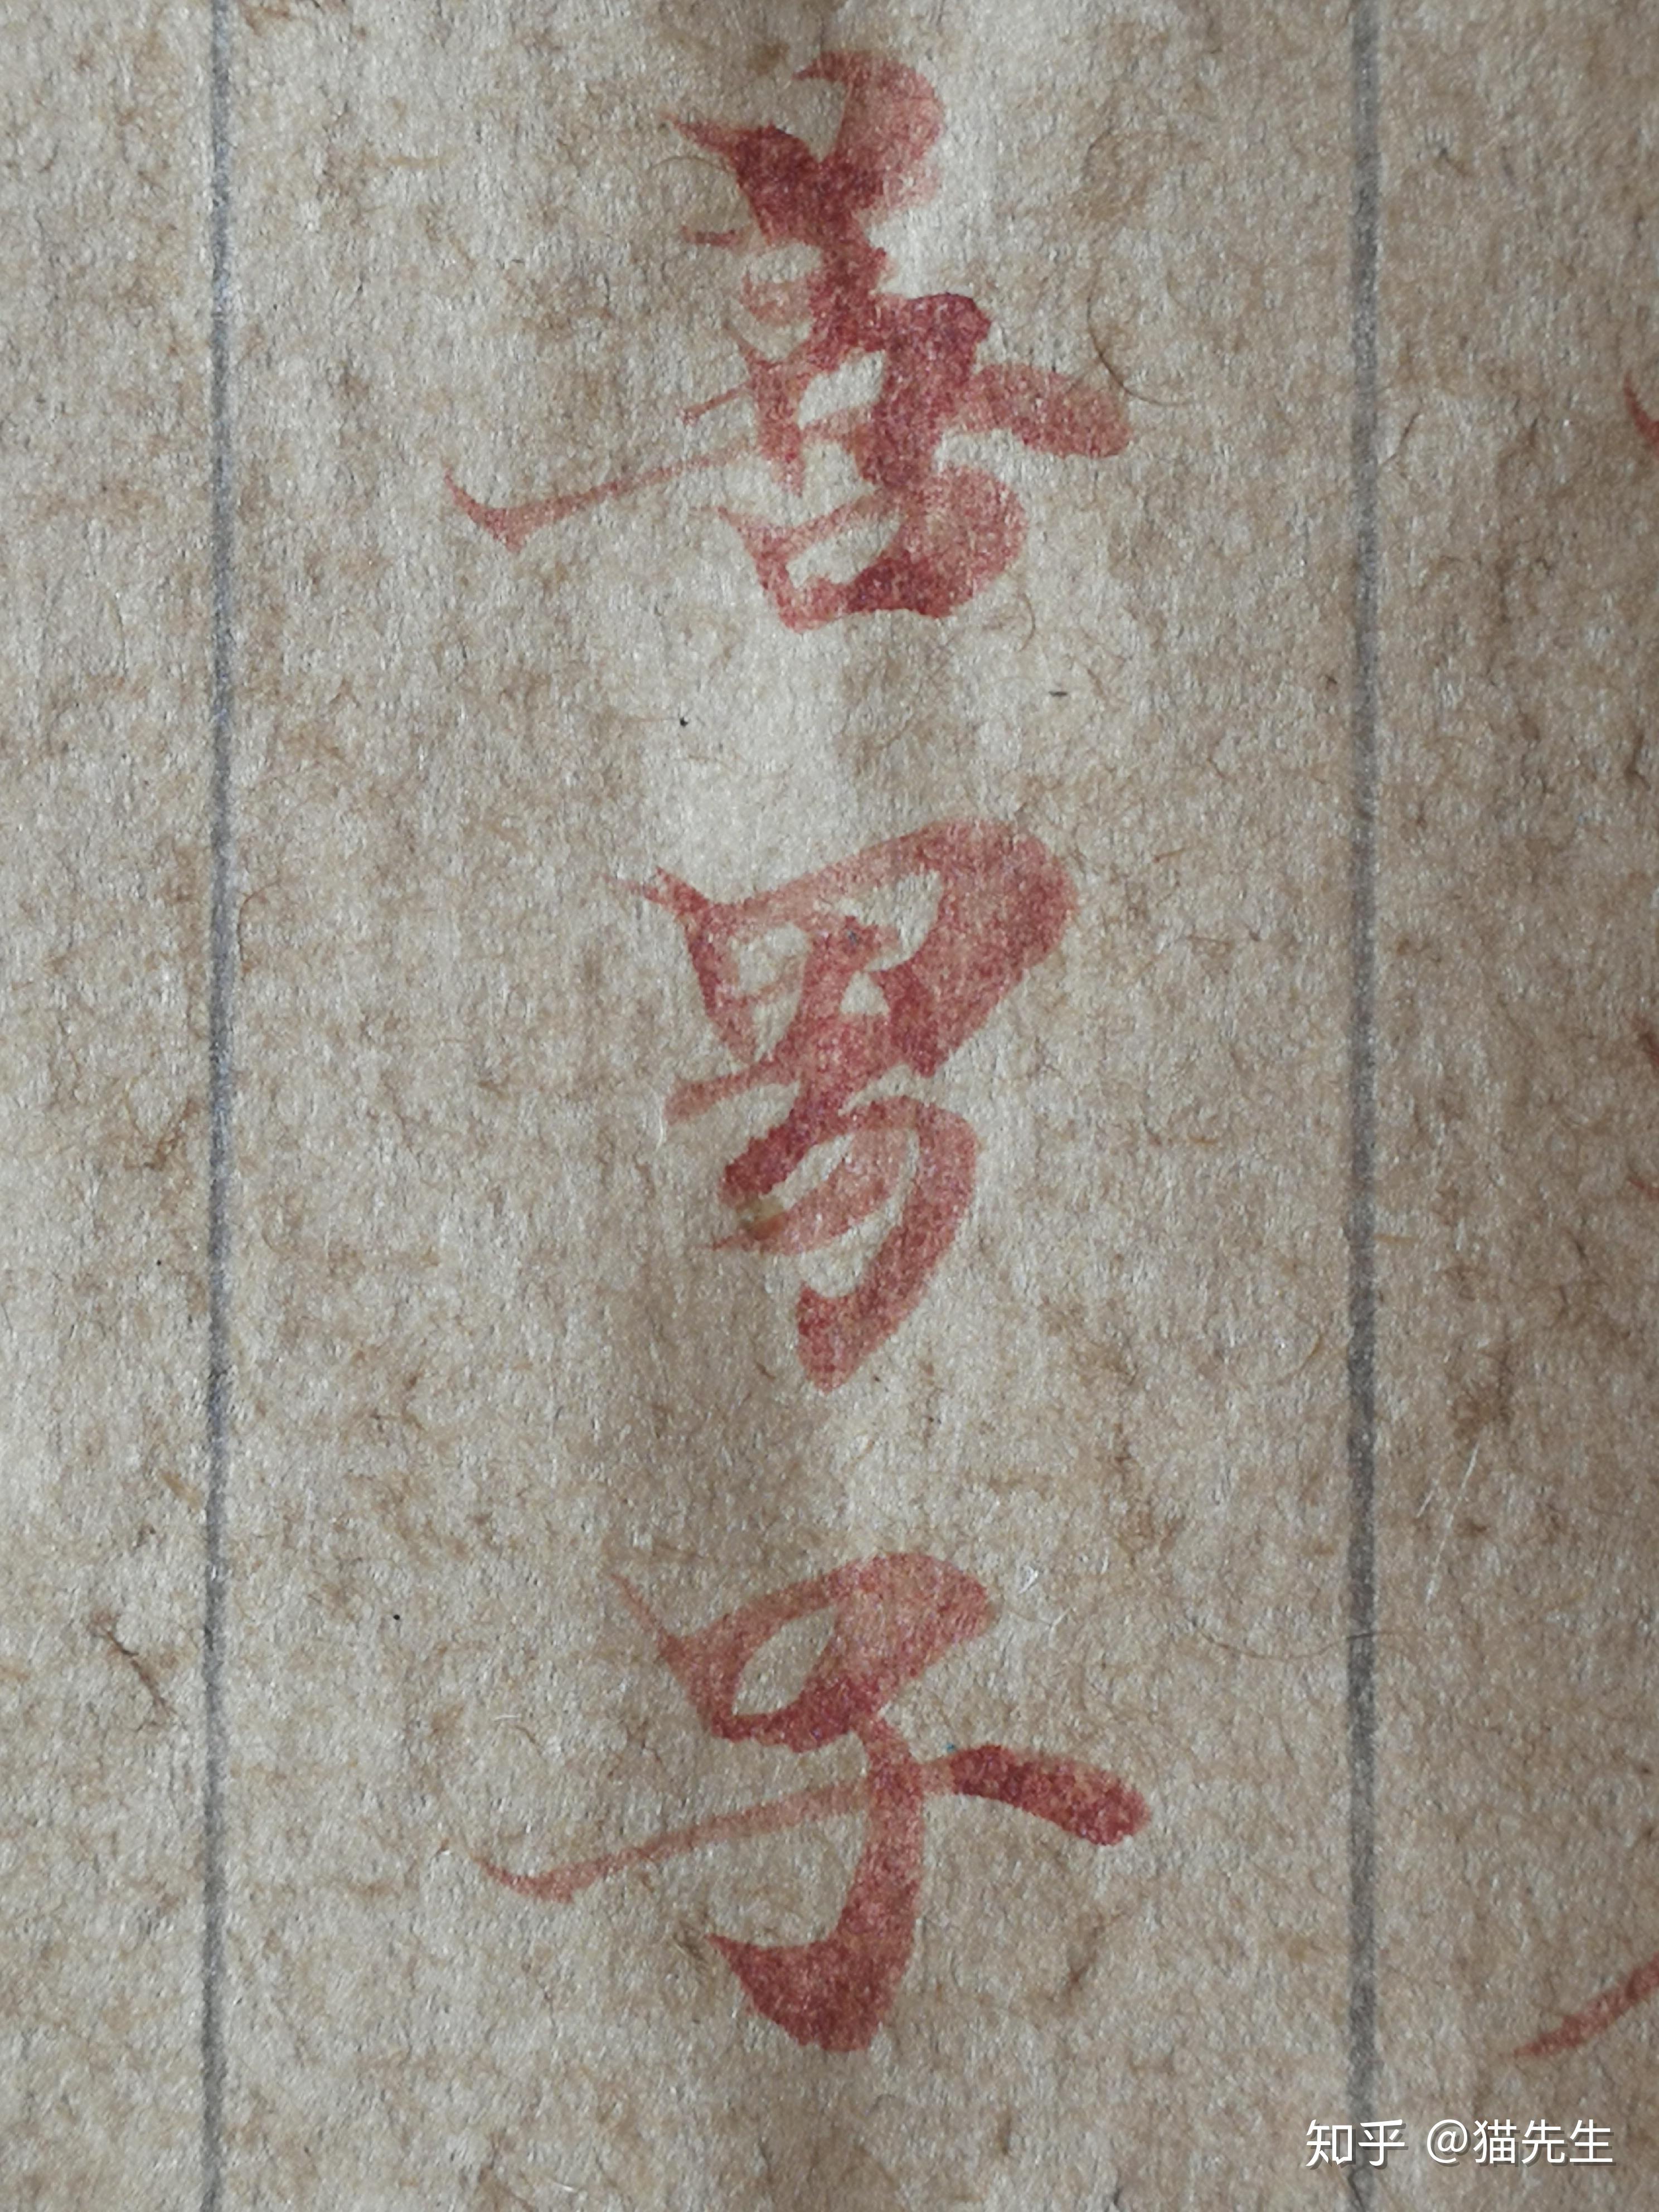 喜男子
知乎 @猫先生